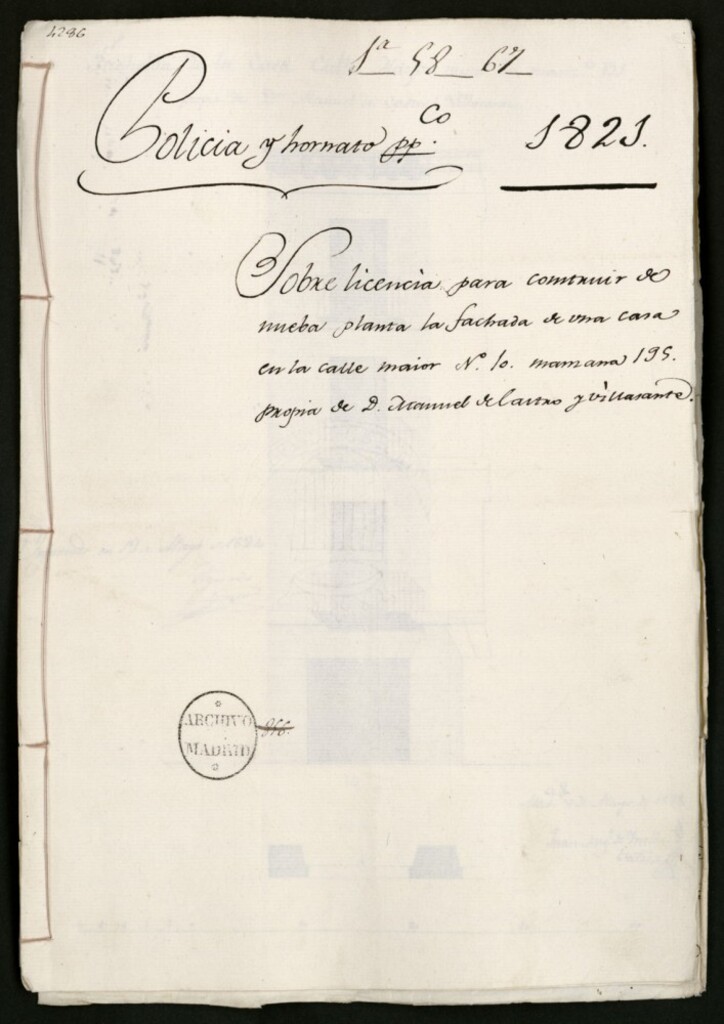 4286
1ª 58 67
Policia y hornato pp.co 1821.
Sobre licencia para construir de
nueba planta la fachada de una casa
en la calle maior N.º 10. manzana 195.
propia de D. Manuel de Castro y Villasante.
ARCHIVO
MADRID